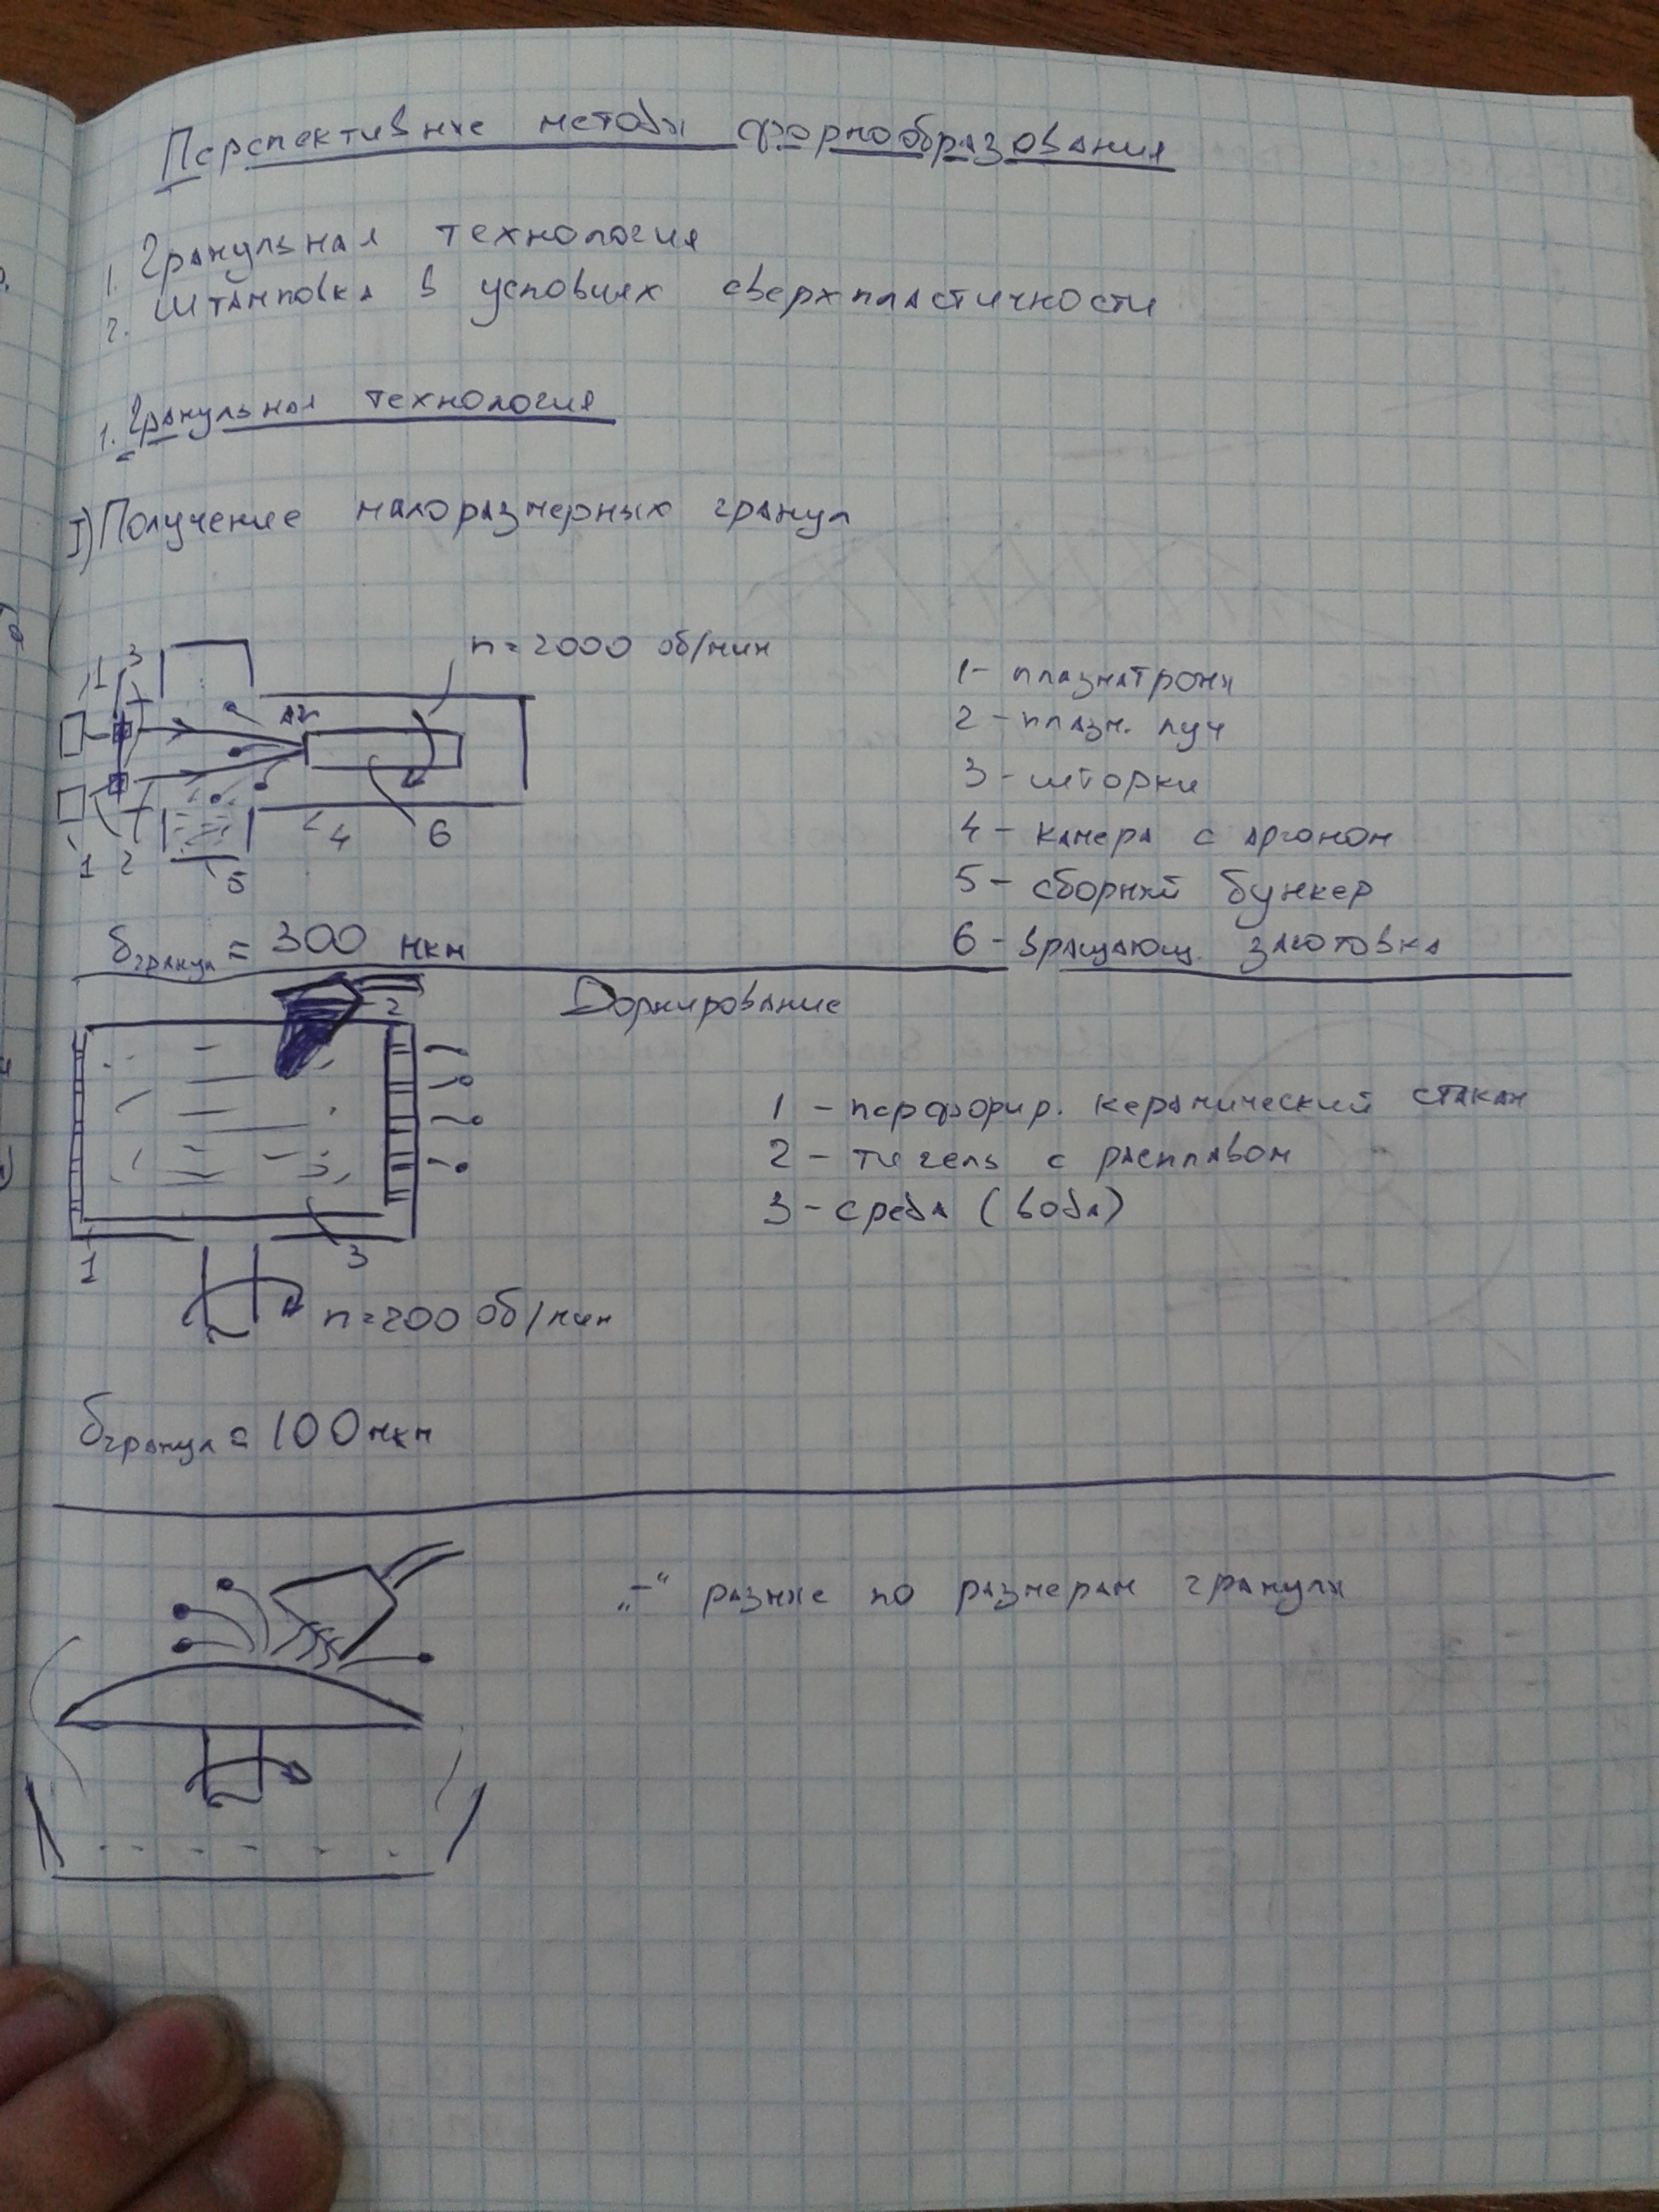 Перспективные методы формообразования
1. Гранульная технология
2. Штамповка в условиях сверхпластичности
1. Гранульная технология
I) Получение малоразмерных гранул
n = 2000 об/мин
1 3
Ar
1 2 5 4 6
1 - плазматроны
2 - плазм. луч
3 - шторки
4 - камера с аргоном
5 - сборный бункер
6 - вращающ. заготовка
δгранул = 300 мкм
Дорнирование
2
1 3
n = 200 об/мин
1 - перфорир. керамический стакан
2 - тигель с расплавом
3 - среда (вода)
δгранул = 100 мкм
„-“ разные по размерам гранулы